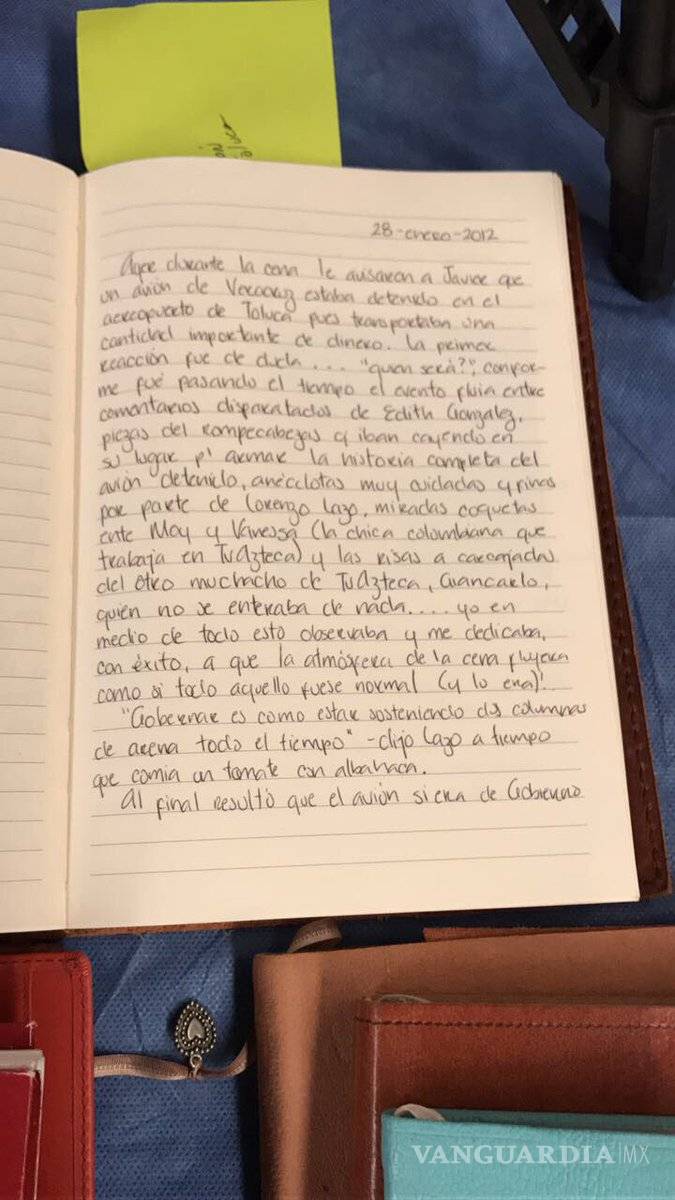 28-enero-2012
Ayer durante la cena le avisaron a Javier que
un avión de Veracruz estaba detenido en el
aeropuerto de Toluca pues transportaba una
cantidad importante de dinero. La primer
reacción fue de duda... "quien será?", confor-
me fué pasando el tiempo el evento fluia entre
comentarios disparatados de Edith González,
piezas del rompecabezas q iban cayendo en
su lugar p' armar la historia completa del
avión detenido, anécdotas muy cuidadas y finas
por parte de Lorenzo Lazo, miradas coquetas
ente Moy y Vanessa (la chica colombiana que
trabaja en TvAzteca) y las risas a carcajadas
del otro muchacho de TvAzteca, Giancarlo,
quien no se enteraba de nada.... yo en
medio de todo esto observaba y me dedicaba,
con éxito, a que la atmósfera de la cena fluyera
como si todo aquello fuese normal (y lo era)!
"Gobernar es como estar sosteniendo dos columnas
de arena todo el tiempo" -dijo Lazo a tiempo
que comia un tomate con albahaca.
Al final resultó que el avión si era de Gobierno
VANGUARDIA|MX